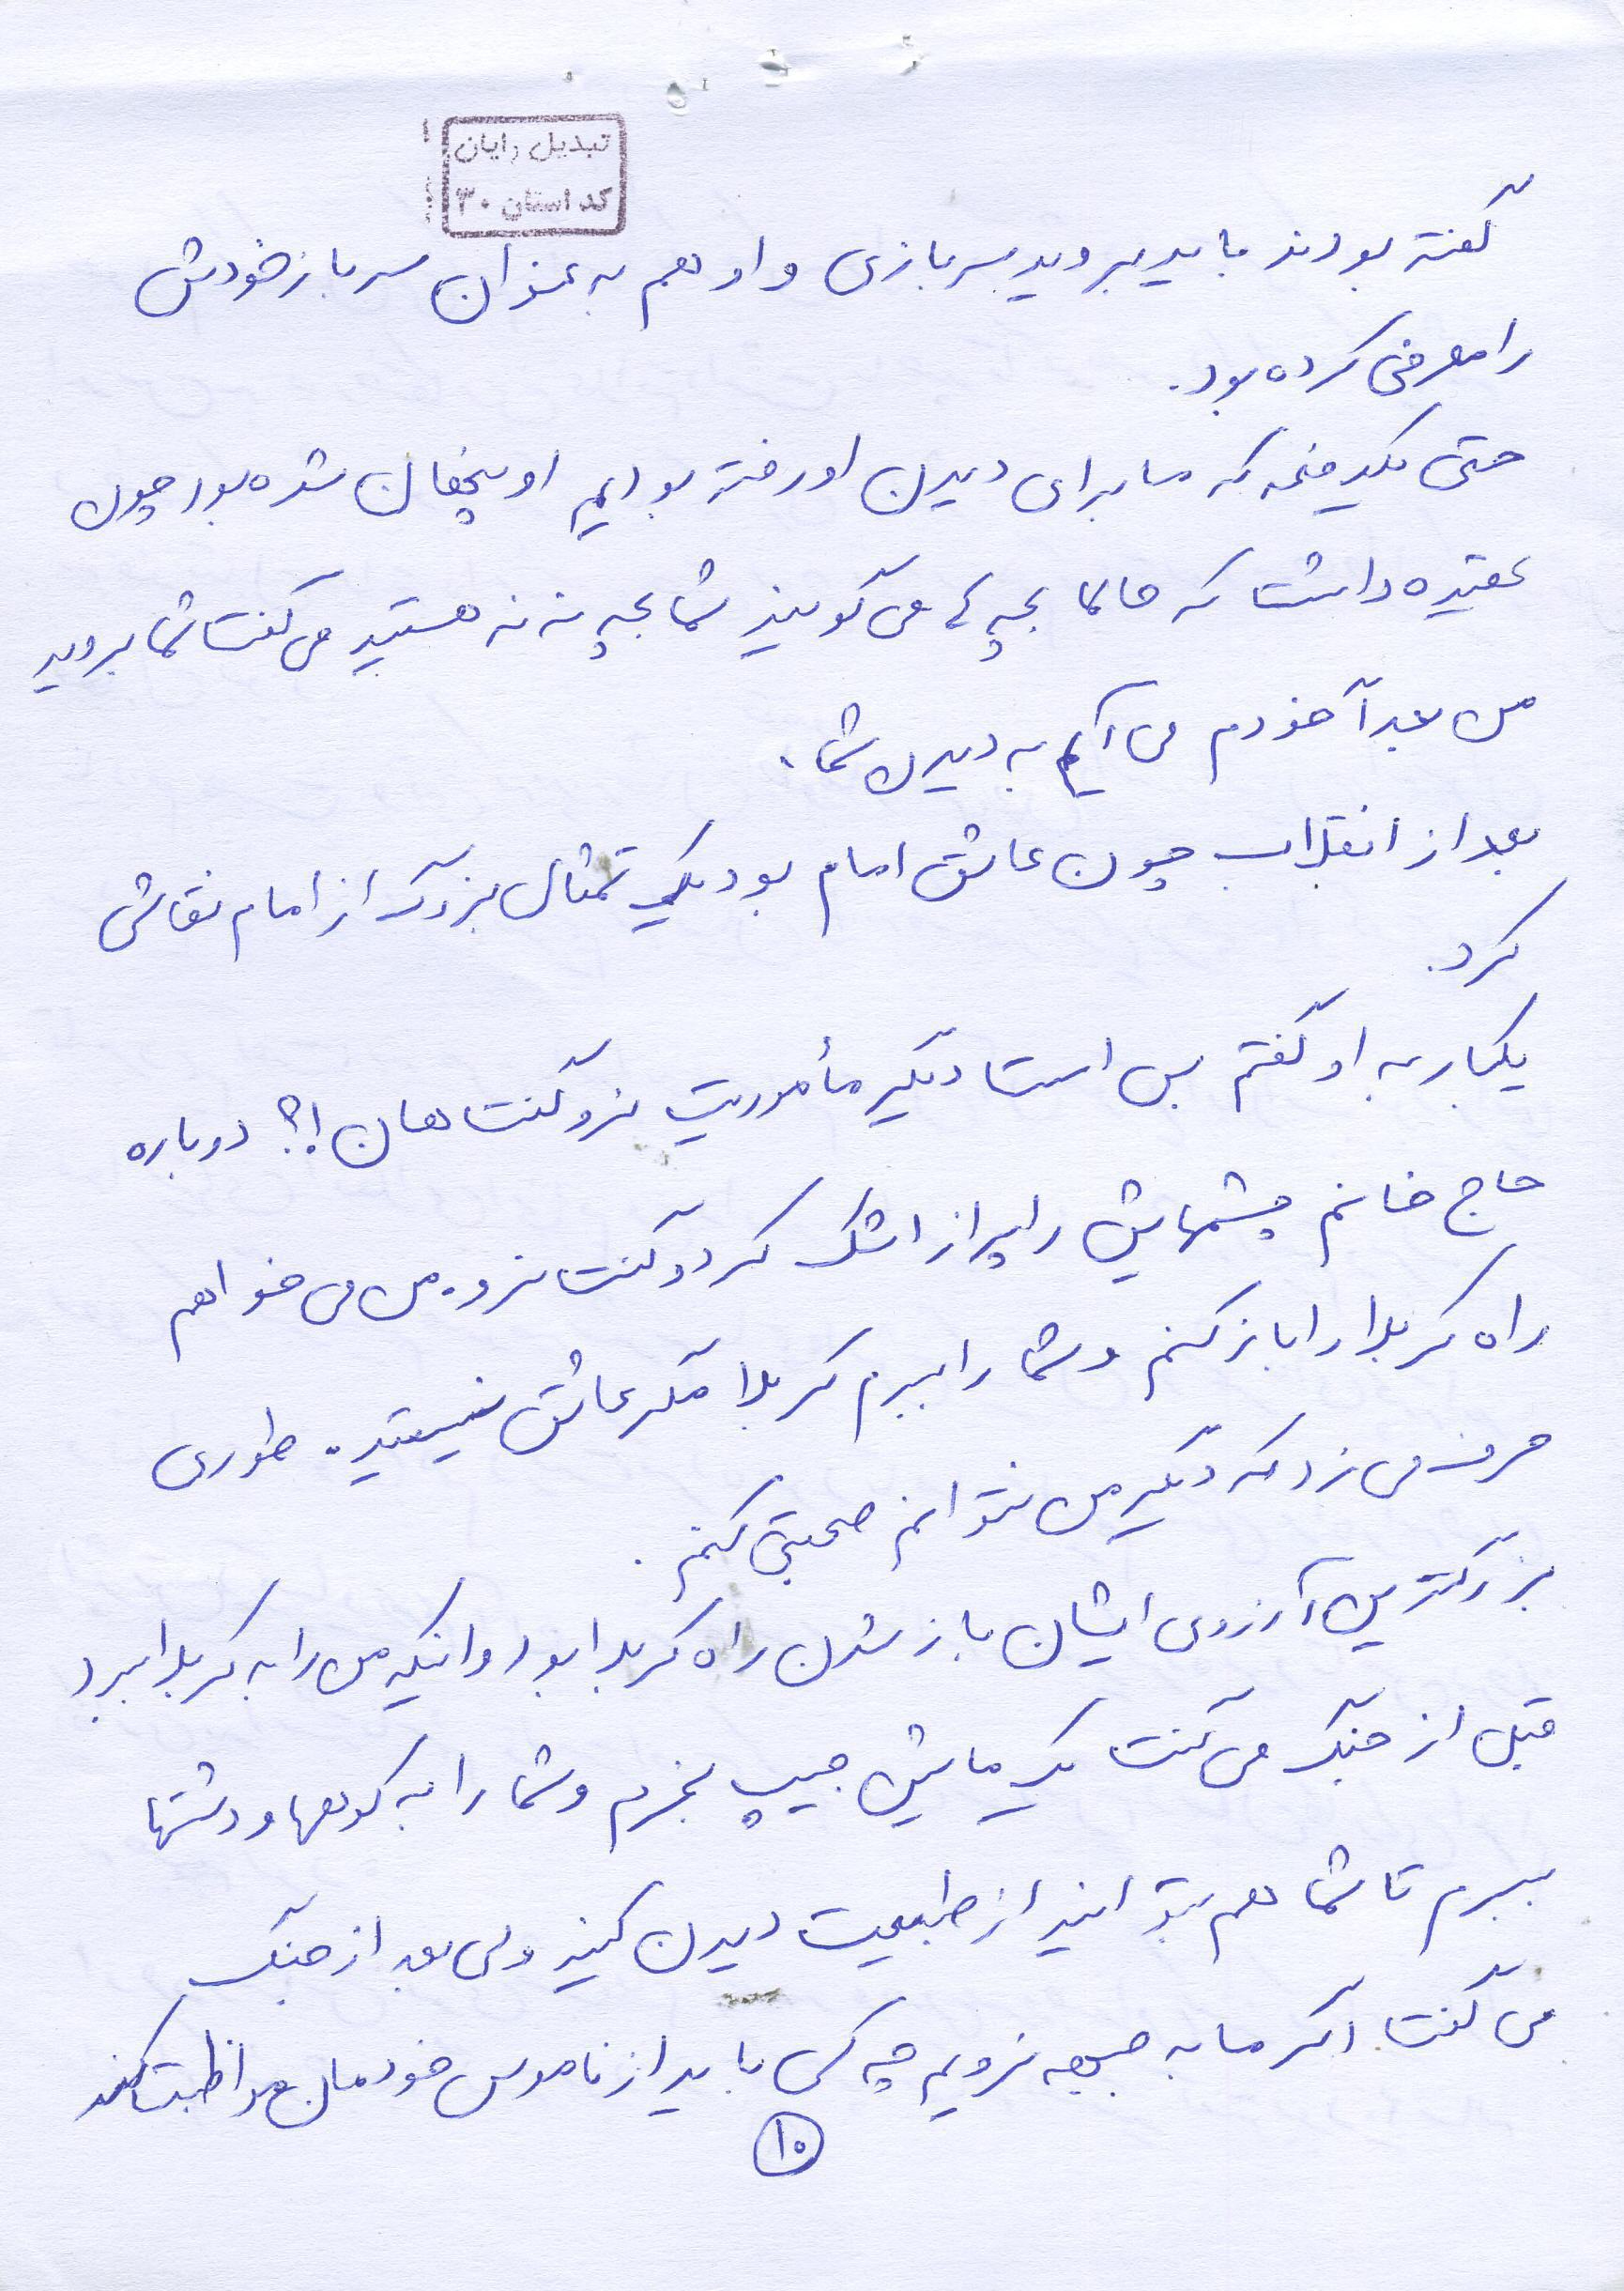 تبدیل رایان
کد استان ۳۰
گفته بودند باید بروید سربازی و او هم به عنوان سرباز خودش
را معرفی کرده بود.
حتی یکدفعه که ما برای دیدن او رفته بودیم او یخفان شده بود چون
عقیده داشت که حالا بچه ها می گویند شما بچه ننه هستید می گفت شما بروید
من بعداً خودم می آیم به دیدن شما.
بعد از انقلاب چون عاشق امام بود یک تمثال بزرگ از امام نقاشی
کرد.
یکبار به او گفتم بس است دیگر مأموریت نرو گفت هان!؟ دوباره
حاج خانم چشمهایش را پر از اشک کرد و گفت نرو. من می خواهم
راه کربلا را باز کنم و شما را ببرم کربلا مگر عاشق نیستید. طوری
حرف می زد که دیگر من نتوانم صحبتی کنم.
بزرگترین آرزوی ایشان باز شدن راه کربلا بود و اینکه من را به کربلا ببرد
قبل از جنگ می گفت یک ماشین جیپ بخرم و شما را به کوهها و دشتها
ببرم تا شما هم بتوانید از طبیعت دیدن کنید ولی بعد از جنگ
می گفت اگر ما به جبهه نرویم چه کسی باید از ناموس خودمان مواظبت کند
۱۰